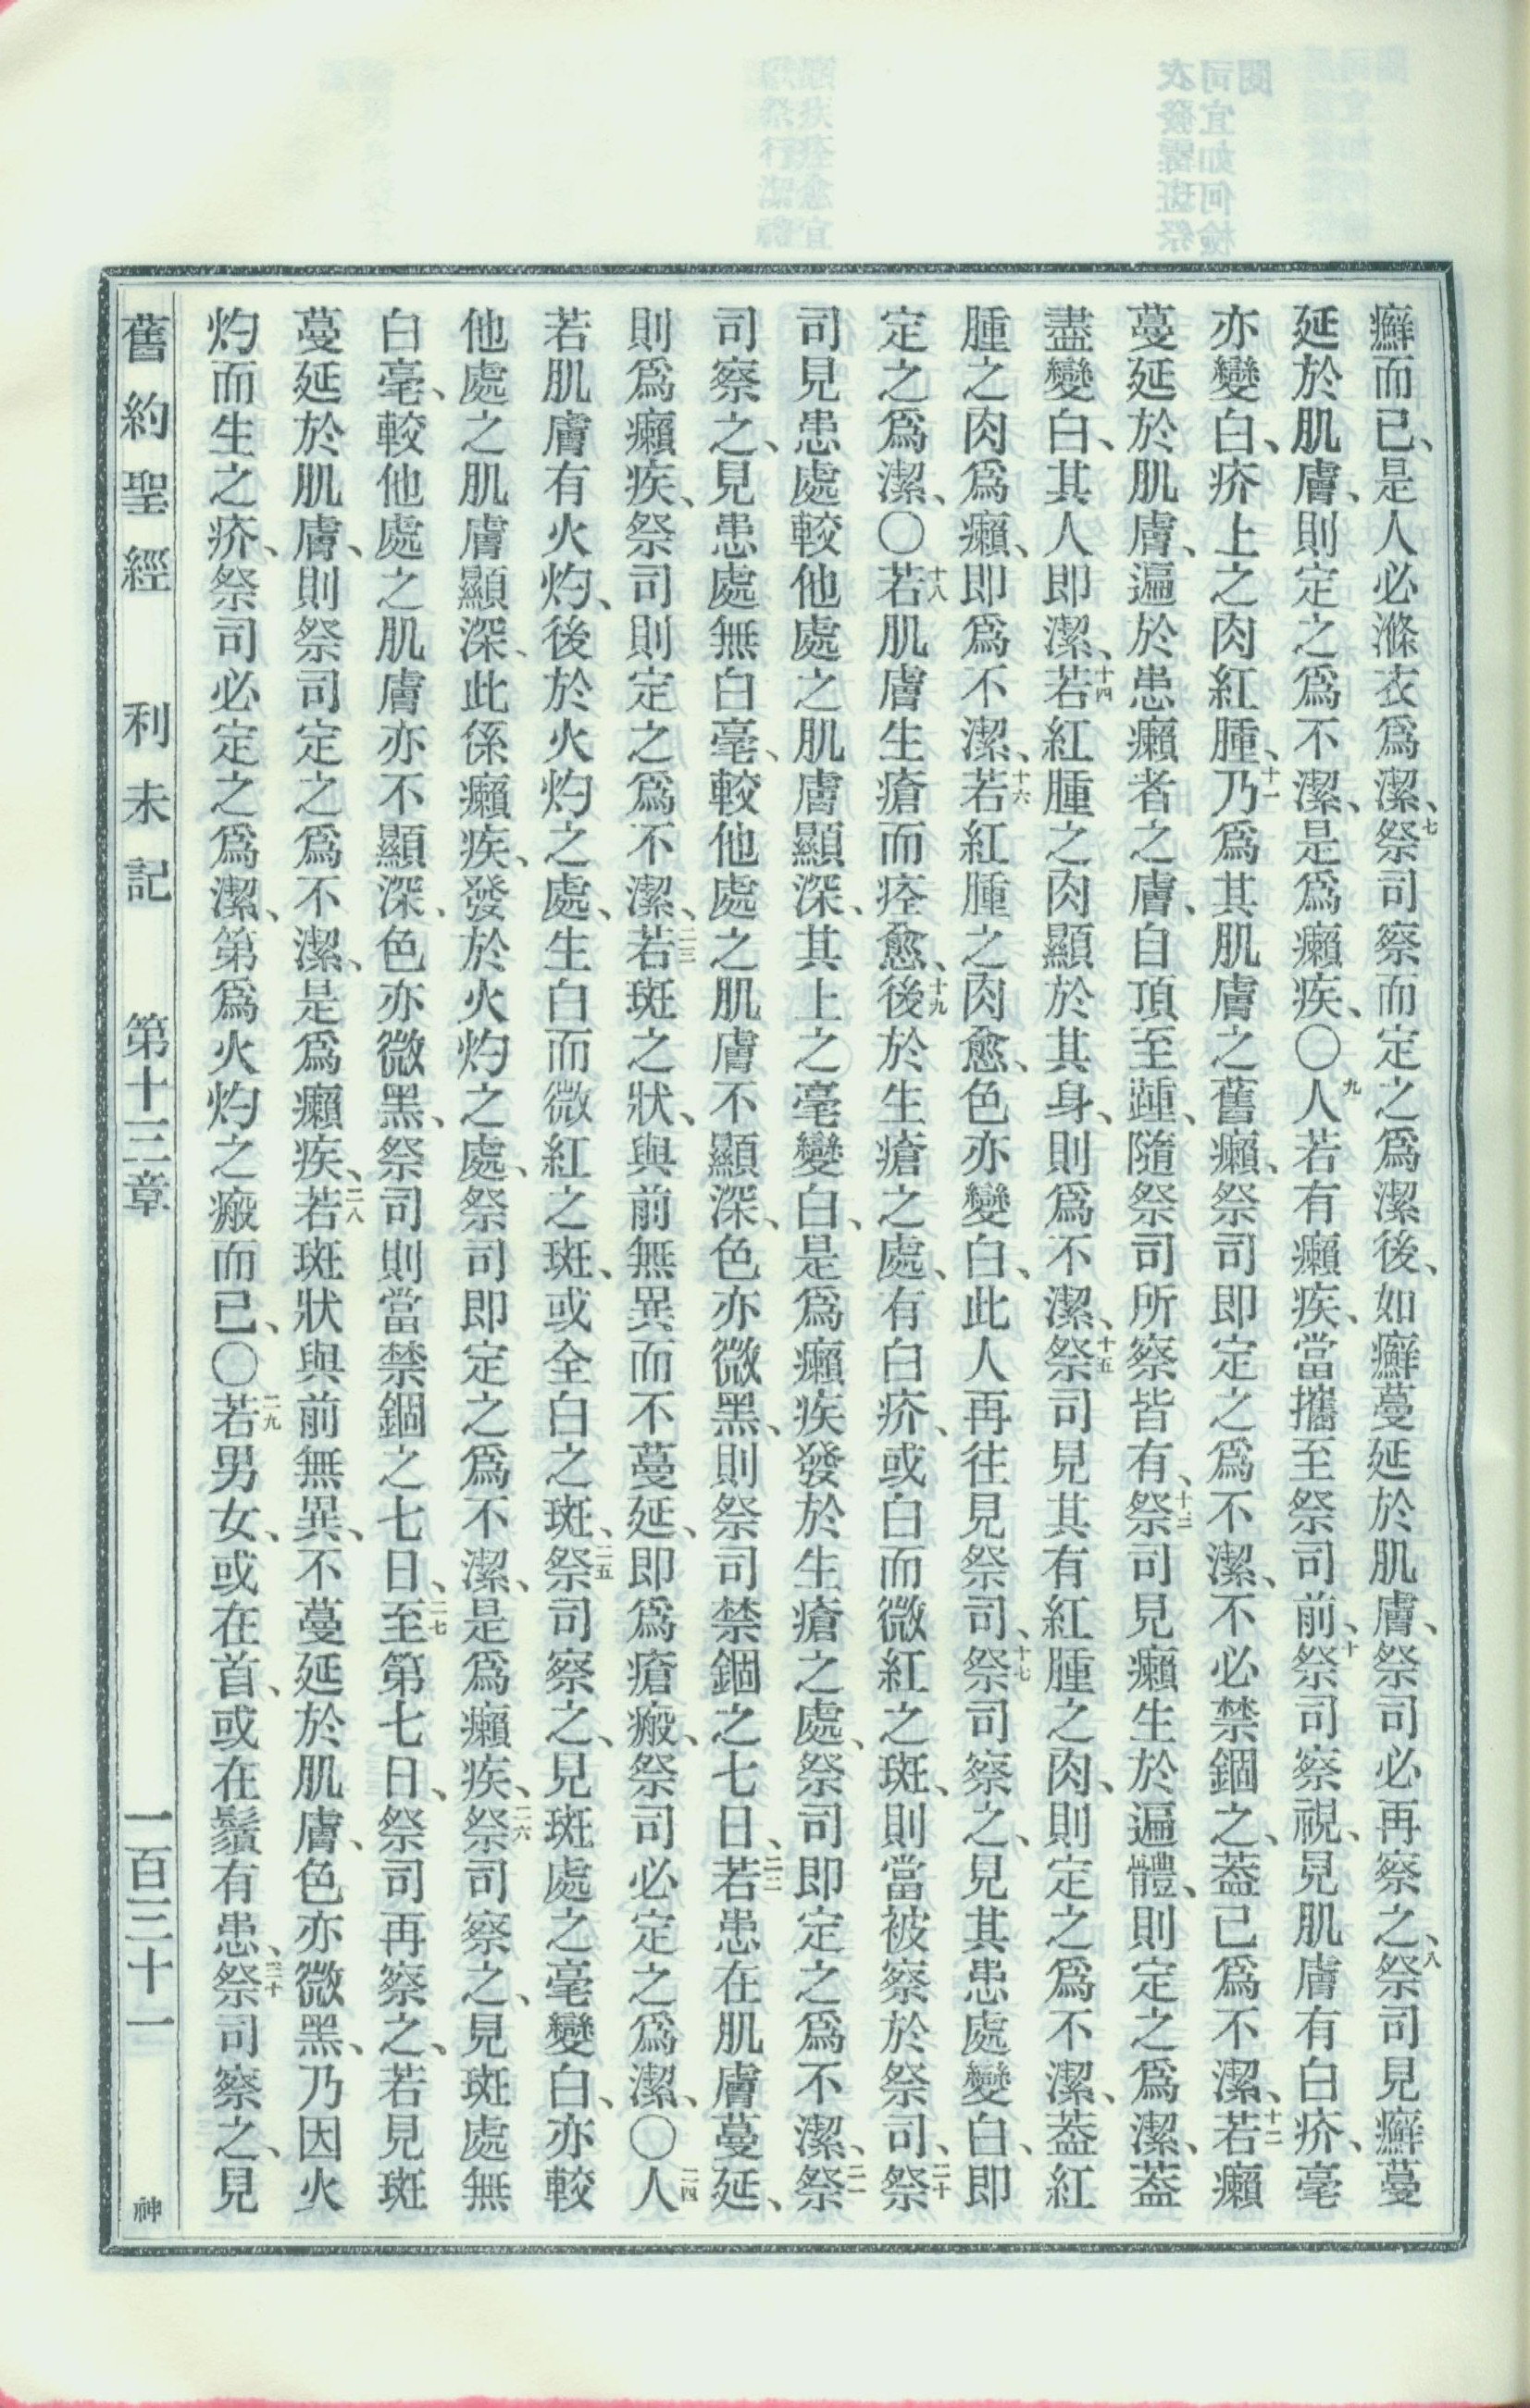 癬而已、是人必滌衣爲潔、七祭司察而定之爲潔後、如癬蔓延於肌膚、祭司必再察之、八祭司見癬蔓
延於肌膚、則定之爲不潔、是爲癩疾、〇九人若有癩疾、當攜至祭司前、十祭司察視、見肌膚有白疥、毫
亦變白、疥上之肉紅腫、十一乃爲其肌膚之舊癩、祭司即定之爲不潔、不必禁錮之、蓋已爲不潔、十二若癩
蔓延於肌膚、遍於患癩者之膚、自頂至踵、隨祭司所察皆有、十三祭司見癩生於遍體、則定之爲潔、蓋
盡變白、其人即潔、十四若紅腫之肉顯於其身、則爲不潔、十五祭司見其有紅腫之肉、則定之爲不潔、蓋紅
腫之肉爲癩、即爲不潔、十六若紅腫之肉愈、色亦變白、此人再往見祭司、十七祭司察之、見其患處變白、即
定之爲潔、〇十八若肌膚生瘡而痊愈、十九後於生瘡之處、有白疥、或白而微紅之斑、則當被察於祭司、二十祭
司見患處較他處之肌膚顯深、其上之毫變白、是爲癩疾發於生瘡之處、祭司即定之爲不潔、二一祭
司察之、見患處無白毫、較他處之肌膚不顯深、色亦微黑、則祭司禁錮之七日、二二若患在肌膚蔓延、
則爲癩疾、祭司則定之爲不潔、二三若斑之狀、與前無異而不蔓延、即爲瘡瘢、祭司必定之爲潔、〇二四人
若肌膚有火灼、後於火灼之處、生白而微紅之斑、或全白之斑、二五祭司察之、見斑處之毫變白、亦較
他處之肌膚顯深、此係癩疾、發於火灼之處、祭司即定之爲不潔、是爲癩疾、二六祭司察之、見斑處無
白毫、較他處之肌膚亦不顯深、色亦微黑、祭司則當禁錮之七日、二七至第七日、祭司再察之、若見斑
蔓延於肌膚、則祭司定之爲不潔、是爲癩疾、二八若斑狀與前無異、不蔓延於肌膚、色亦微黑、乃因火
灼而生之疥、祭司必定之爲潔、第爲火灼之瘢而已、〇二九若男女、或在首、或在鬚有患、三十祭司察之、見
舊約聖經 利未記 第十三章 一百三十一 神